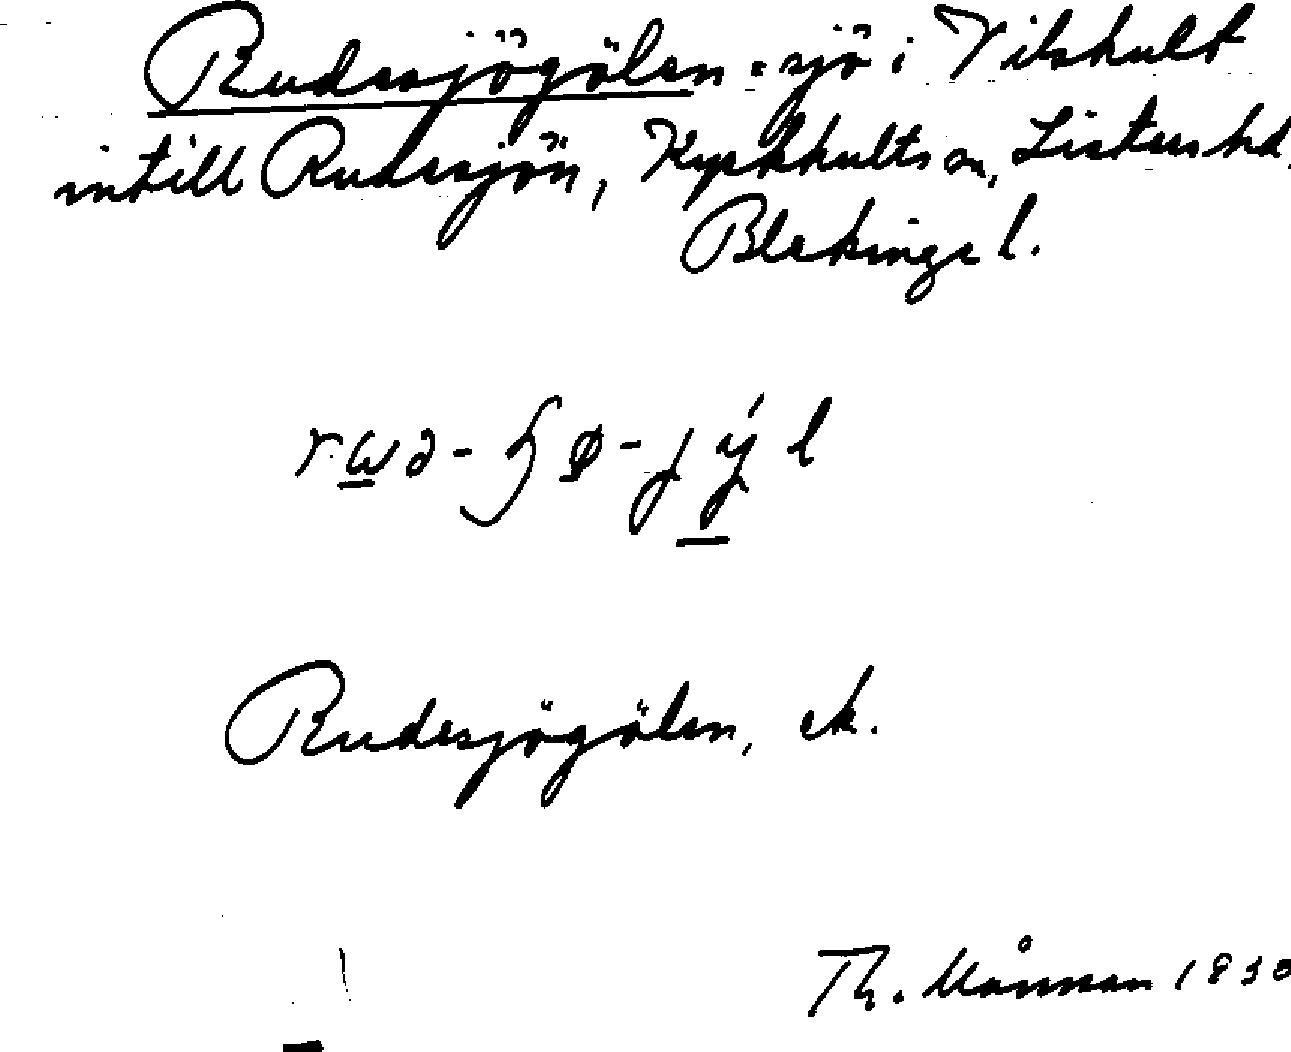 Rudesjögölen = sjö i Vilshult
intill Rudesjön, Kyrkhults sn, Listers hd,
Blekinge l.
Rudesjögölen, ek.
Th. Månsson